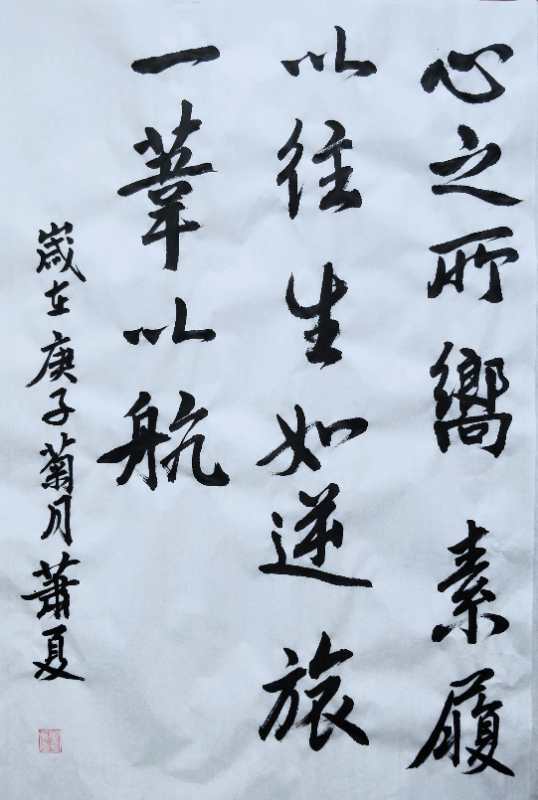 心之所嚮素履
以往生如逆旅
一葦以航
歲在庚子菊月蕭夏